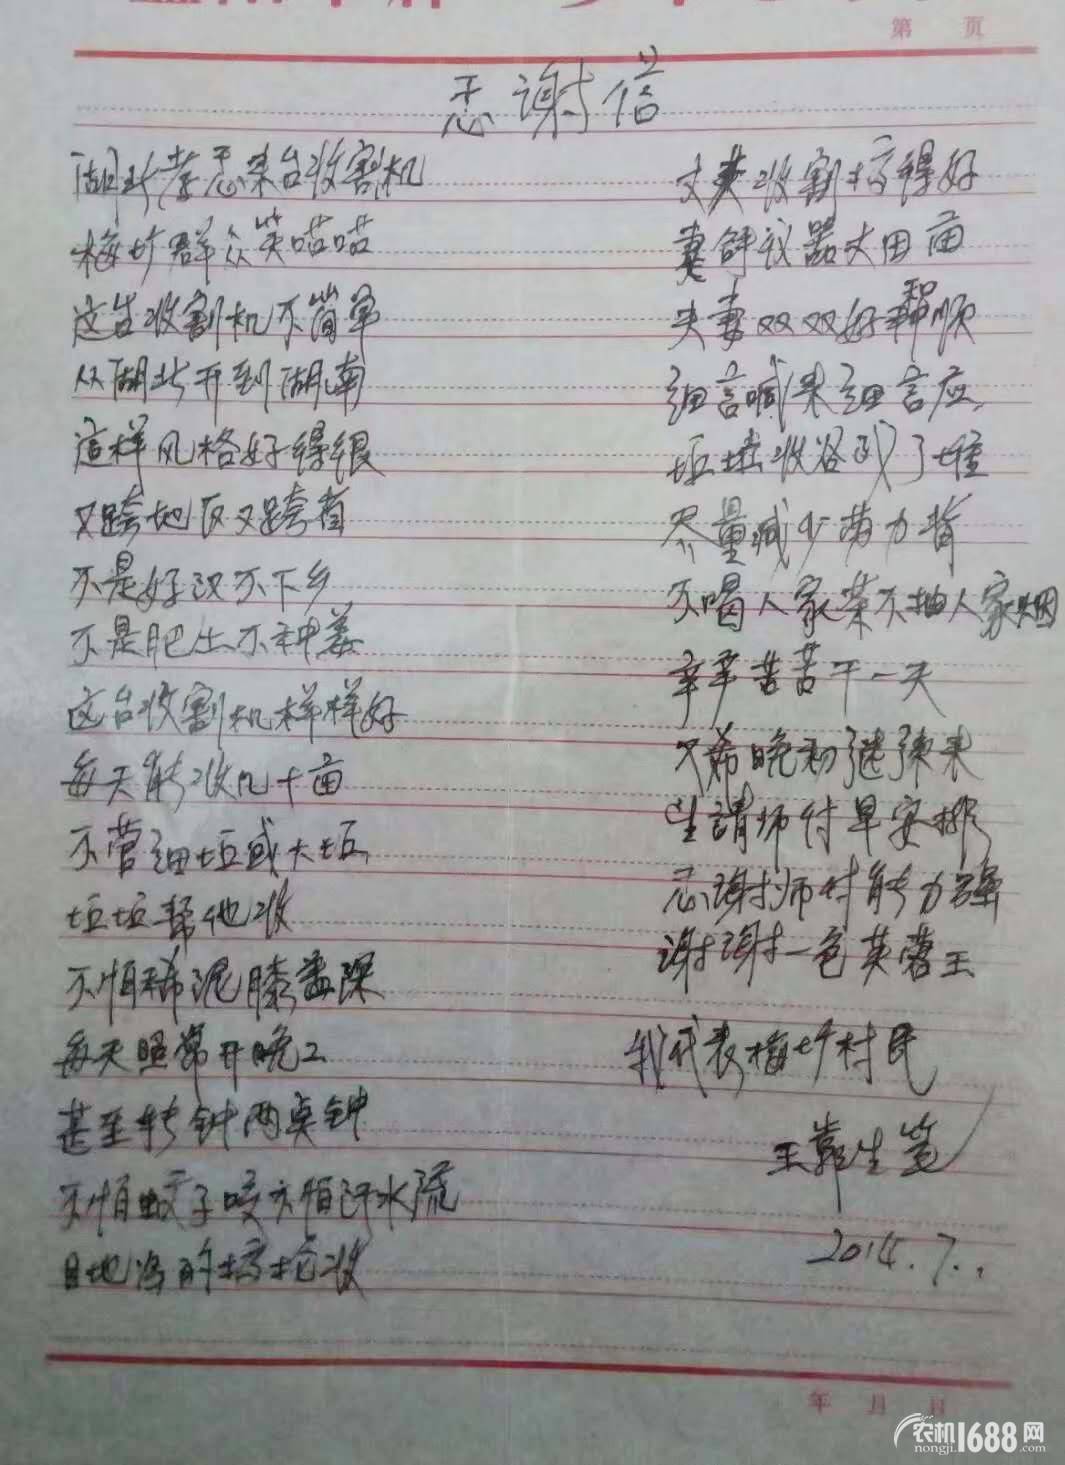 第 页
感谢信
湖北孝感来台收割机
梅圹群众笑嘻嘻
这台收割机不简单
从湖北开到湖南
这样风格好得很
又跨地区又跨省
不是好汉不下乡
不是肥土不种姜
这台收割机样样好
每天能收几十亩
不管细坵或大坵
坵坵帮他收
不怕稀泥膝盖深
每天照常开晚工
甚至转钟两点钟
不怕蚊子咬不怕汗水流
目地为的搞抢收
丈夫收割搞得好
妻 仪器丈田亩
夫妻双双好和顺
细言喊来细言应
坵坵收谷成了堆
尽量减少劳力背
不喝人家茶不抽人家烟
辛辛苦苦干一天
又希晚稻继续来
请师付早安排
感谢师付能力强
谢谢一包芙蓉王
我代表梅圹村民
王 生笔
2014.7..
年 月 日
农机1688网
nongji.1688.com